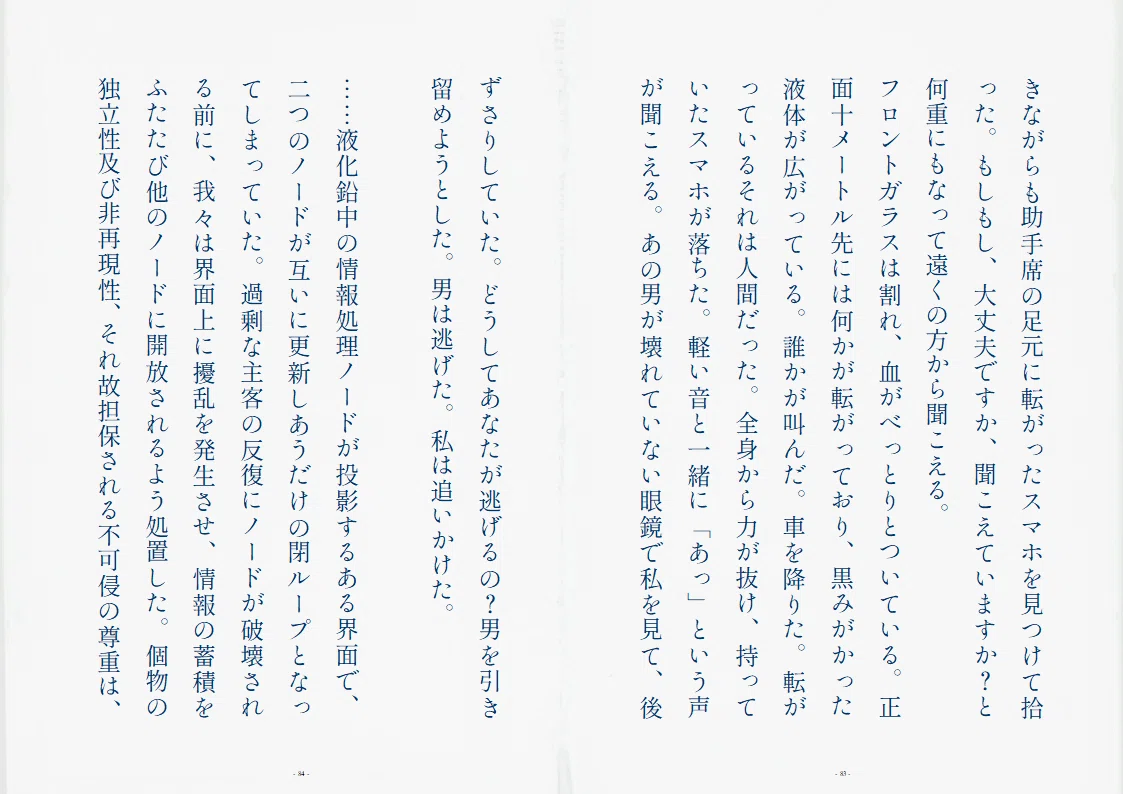 きながらも助手席の足元に転がったスマホを見つけて拾
った。もしもし、大丈夫ですか、聞こえていますか？と
何重にもなって遠くの方から聞こえる。
フロントガラスは割れ、血がべっとりとついている。正
面十メートル先には何かが転がっており、黒みがかった
液体が広がっている。誰かが叫んだ。車を降りた。転が
っているそれは人間だった。全身から力が抜け、持って
いたスマホが落ちた。軽い音と一緒に「あっ」という声
が聞こえる。あの男が壊れていない眼鏡で私を見て、後
- 83 -
ずさりしていた。どうしてあなたが逃げるの？男を引き
留めようとした。男は逃げた。私は追いかけた。
……液化鉛中の情報処理ノードが投影するある界面で、
二つのノードが互いに更新しあうだけの閉ループとなっ
てしまっていた。過剰な主客の反復にノードが破壊され
る前に、我々は界面上に擾乱を発生させ、情報の蓄積を
ふたたび他のノードに開放されるよう処置した。個物の
独立性及び非再現性、それ故担保される不可侵の尊重は、
- 84 -